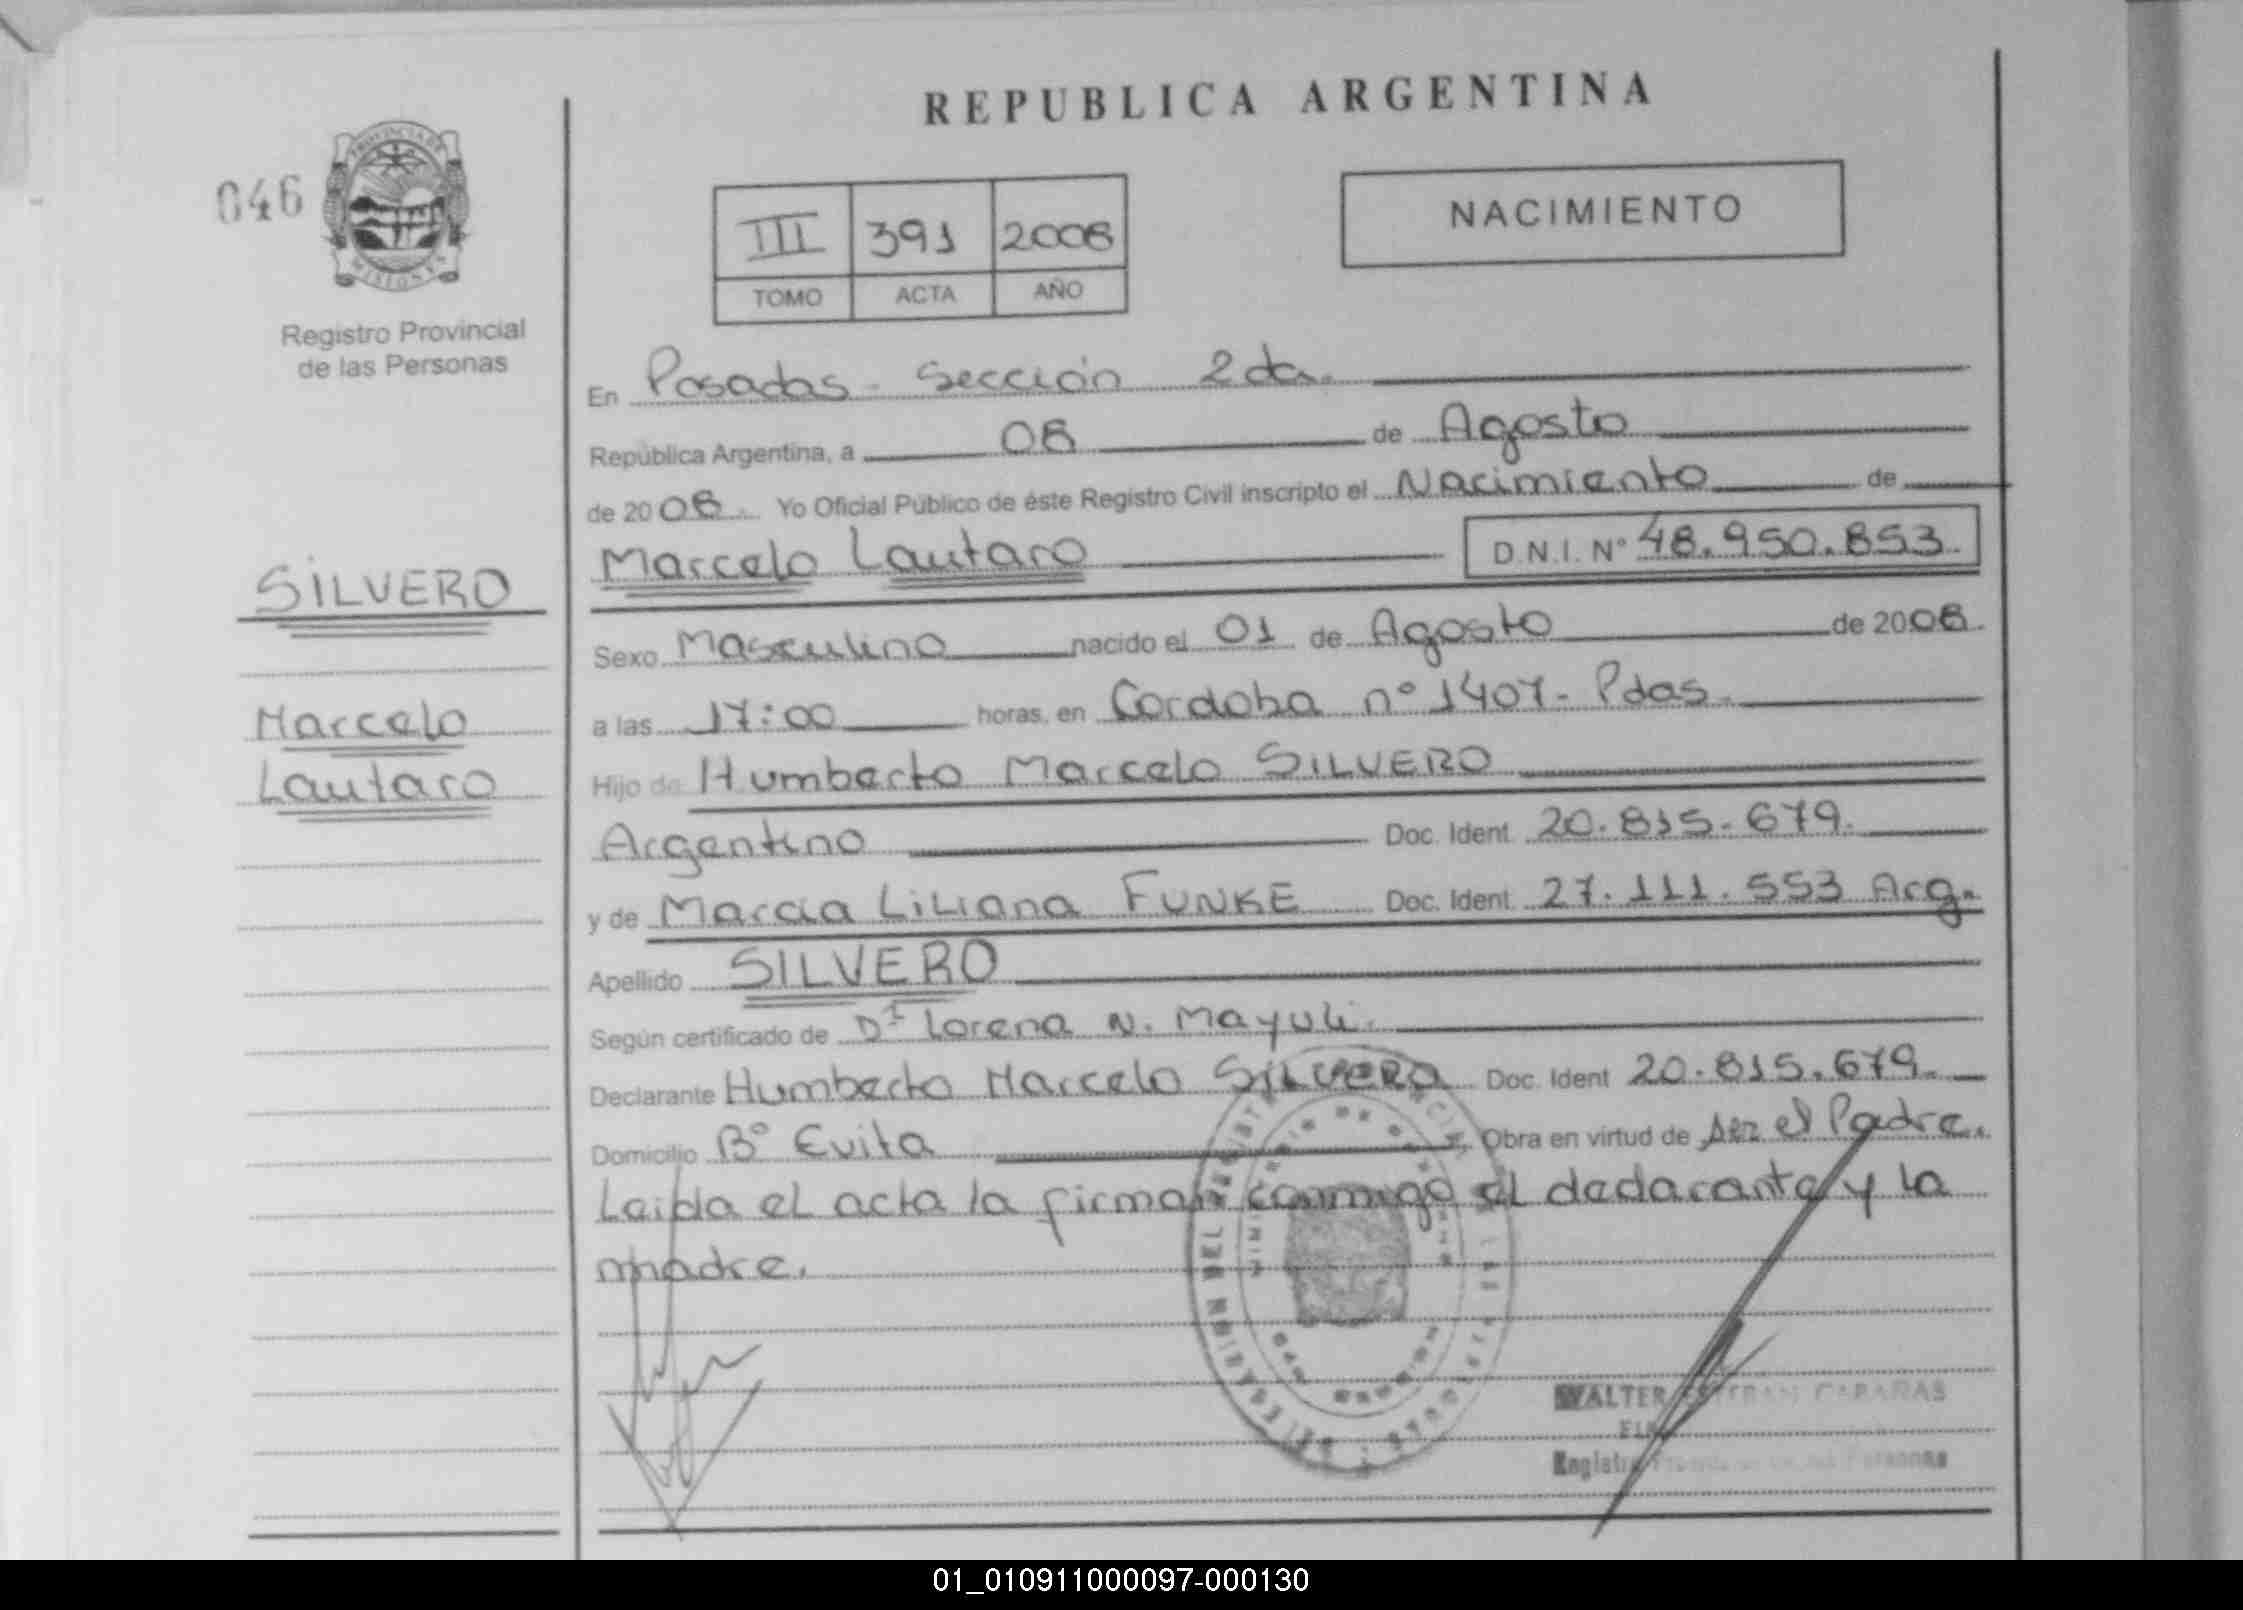 REPUBLICA ARGENTINA
046
PROVINCIA DE
MISIONES
Registro Provincial
de las Personas
III 391 2008
TOMO ACTA AÑO
NACIMIENTO
En Posadas - Sección 2da.
República Argentina, a 08 de Agosto
de 2008. Yo Oficial Público de éste Registro Civil inscripto el Nacimiento de
Marcelo Lautaro D.N.I. Nº 48.950.853.
SILVERO
Sexo Masculino nacido el 01 de Agosto de 2008.
Marcelo
a las 17:00 horas, en Cordoba nº 1407- Pdas.
Lautaro
Hijo de Humberto Marcelo SILVERO
Argentino Doc. Ident. 20.815.679.
y de Marcia Liliana FUNKE Doc. Ident. 27.111.553 Arg.
Apellido SILVERO
Según certificado de Dra Lorena N. Mayuli.
Declarante Humberto Marcelo SILVERO Doc. Ident 20.815.679.
Domicilio Bº Evita Obra en virtud de ser el Padre.
Leida el acta la firman conmigo el declarante y la
madre.
WALTER ESTEBAN CABAÑAS
01_010911000097-000130